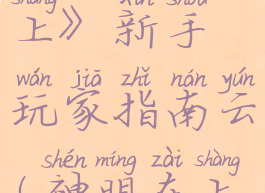 shàng xīn shǒu
上》新手
wán jiā zhǐ nán yún
玩家指南云
shén míng zài shàng
(神明在上